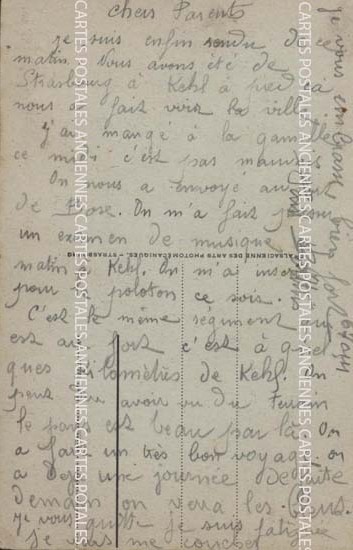 chers Parents
je suis enfin rendu de ce
matin. Nous avons été de
Strasbourg à Kehl à pied à
nous a fait voir la ville
J'ai mangé à la gamelle
ce midi c'est pas mauvais
On nous a envoyé au
de Rose. On m'a fait
un examen de musique
matin à Kehl. On m'a
pour le peloton ce soir.
C'est le même régiment
est au fort c'est à quel
ques kilomètres de Kehl. On
peut avoir vu du terrain
le pays est beau par là On
a fait un très bon voyage on
a une journée de
demain on verra les
je vous quitte je suis fatigué
je vais me coucher
je vous embrasse bien fort
ALSACIENNE DES ARTS PHOTOMÉCANIQUES, - STRASBOURG
CARTES POSTALES ANCIENNES